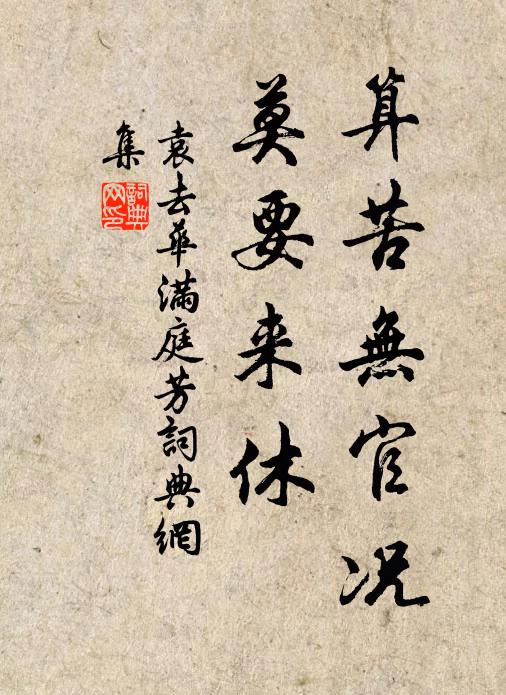 算苦無官况
莫要来休
袁去華滿庭芳詞典網
集
詞典
网印